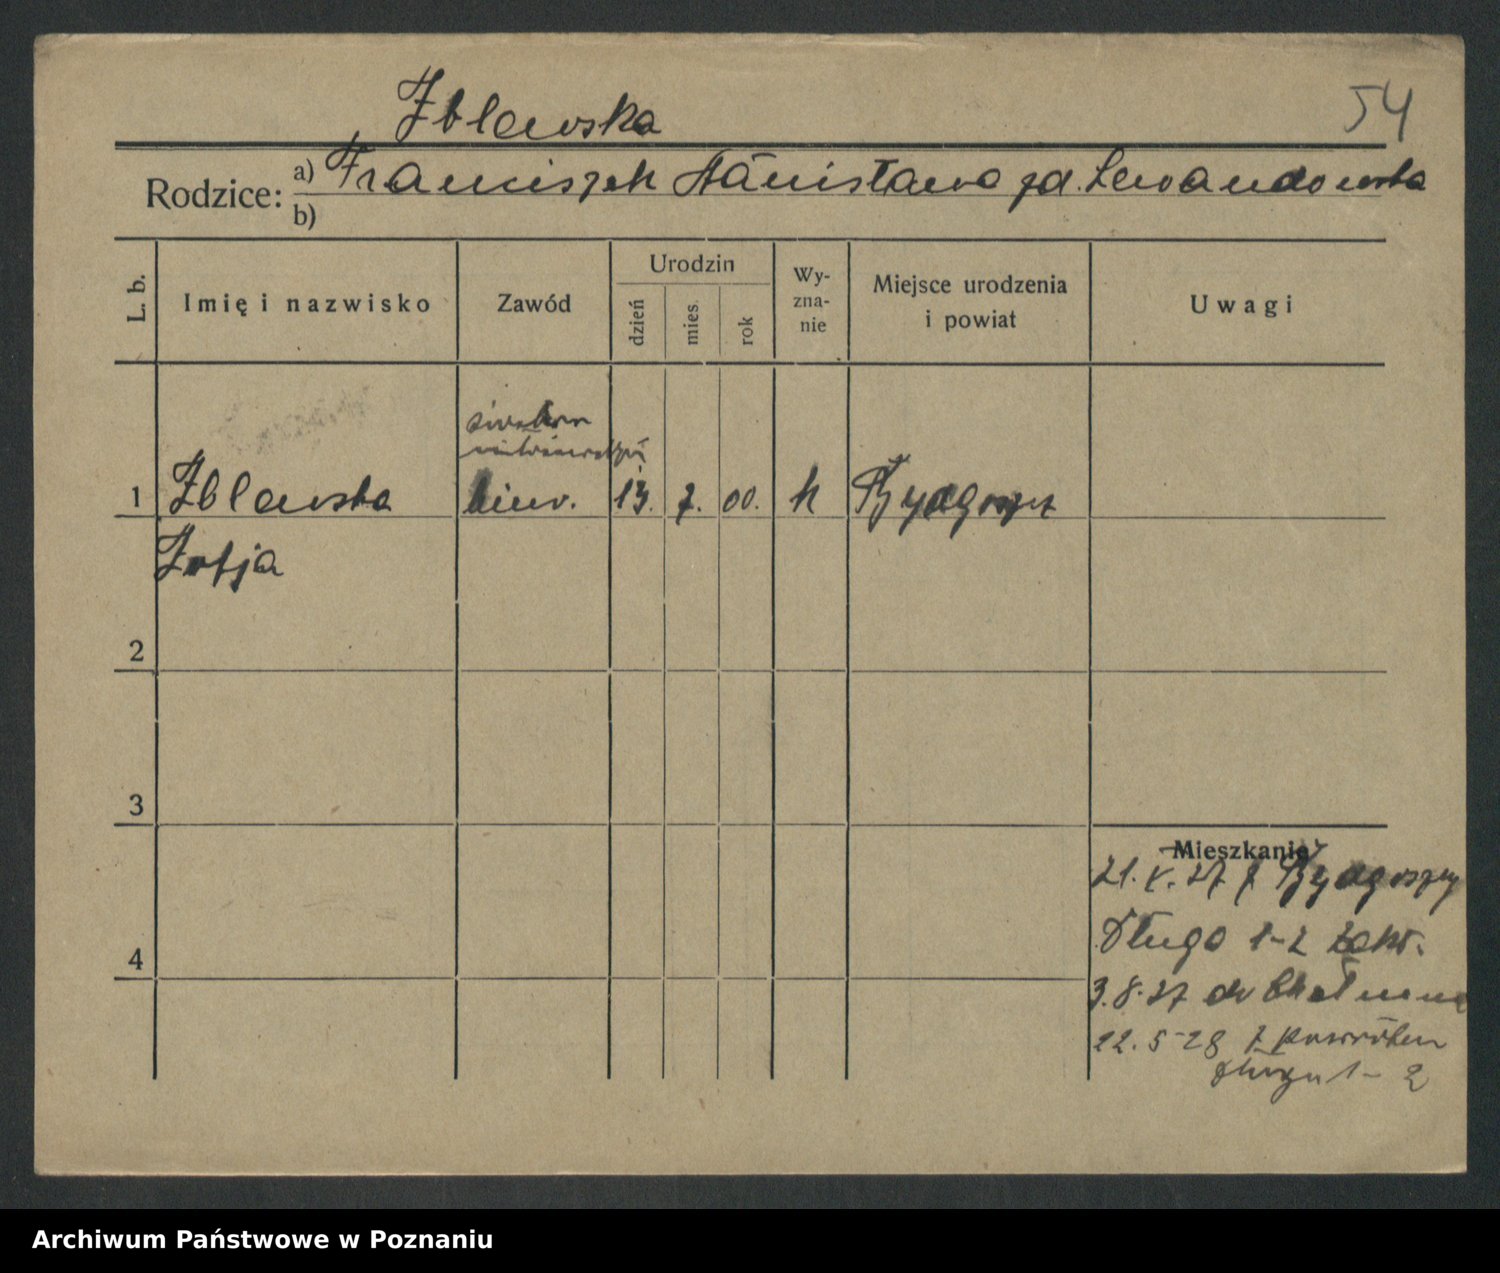 Zblewska
54
Rodzice: a) Franciszek Stanisława zd. Lewandowska
b)
L. b.
Imię i nazwisko
Zawód
Urodzin
dzień
mies.
rok
Wy-
zna-
nie
Miejsce urodzenia
i powiat
Uwagi
1 Zblewska 13. 7. 00. k Bydgoszcz
Zofja
2
3
4
Mieszkanie
21. V. 27 z Bydgoszczy
Długa 1-2
3.8.27 do
22. 5-28 z powrotem
1-2
Archiwum Państwowe w Poznaniu